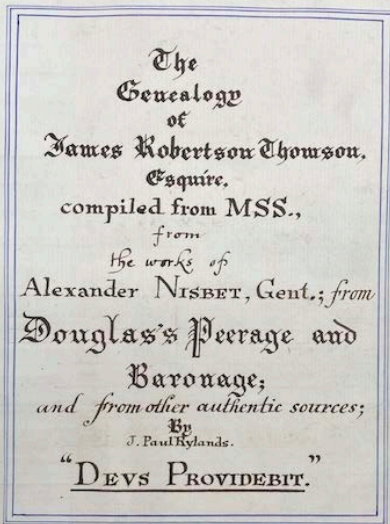 The
Genealogy
of
James Robertson Thomson,
Esquire,
compiled from MSS.,
from
the works of
Alexander NISBET, Gent.; from
Douglas's Peerage and
Baronage;
and from other authentic sources;
By
J. Paul Rylands.
“DEVS PROVIDEBIT.”